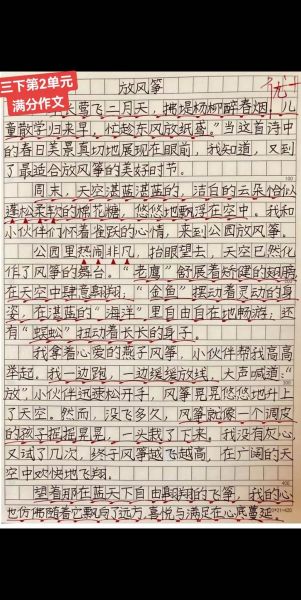 三下第2单元
满分作文
优
放风筝
长莺飞二月天，拂堤杨柳醉春烟。儿
童散学归来早，忙趁东风放纸鸢。"当这首诗中
的春日美景真切地展现在眼前，我知道，又到
了最适合放风筝的美好时节。
周末，天空湛蓝湛蓝的，洁白的云朵恰似
蓬松柔软的棉花糖，悠悠地飘浮在空中。我和
小伙伴们怀着雀跃的心情，来到公园放风筝。
公园里热闹非凡，抬眼望去，天空已然化
作了风筝的舞台。"老鹰"舒展着矫健的翅膀
在天空中肆意翱翔；"金鱼"摆动着灵动的身
姿，在湛蓝的"海洋"里自由自在地畅游；还
有"蜈蚣"扭动着长长的身子。
我拿着心爱的燕子风筝，小伙伴帮我高高
举起。我一边跑，一边缓缓放线，大声喊道："
放"小伙伴迅速松开手，风筝晃晃悠悠地升上
了天空。然而，没飞多久，风筝就像一个调皮
的孩子摇摇晃晃，一头栽了下来。我没有灰心
又试了几次，终于风筝越飞越高，在广阔的天
空中欢快地飞翔。
望着那在蓝天下自由翱翔的飞筝，我的心
也仿佛随着它飘向了远方，喜悦与满足在心底蔓延。